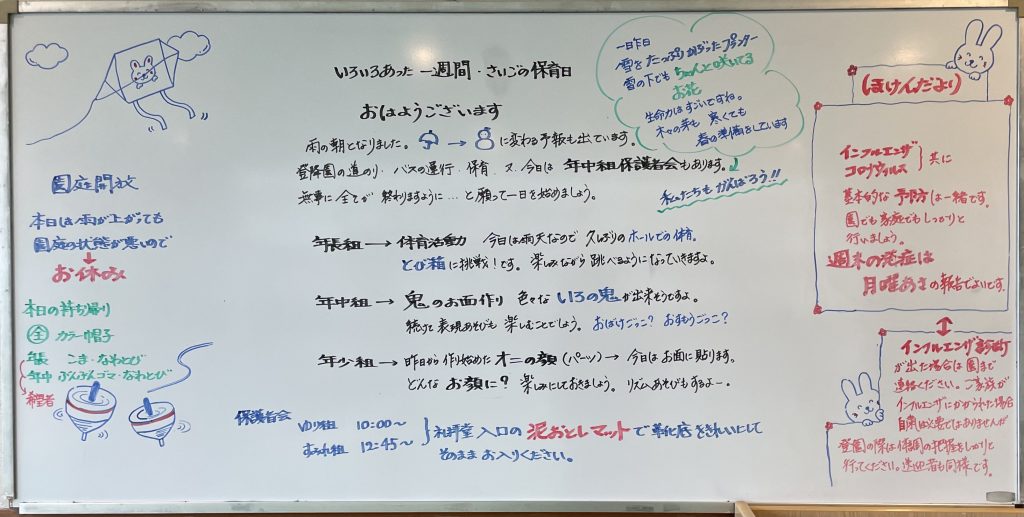 いろいろあった 一週間・さいごの保育日
おはようございます
雨の朝となりました。 → に変わる予報も出ています。
登降園の道のり・バスの運行・保育 又、今日は 年中組保護者会もあります。
無事に全てが 終わりますように…と願って一日を始めましょう。
一昨日
雪をたっぷりかぶったプランター
雪の下でも ちゃんと咲いてる
お花
生命力はすごいですね。
木々の芽も 寒くても
春の準備をしています
私たちも がんばろう!!
年長組 → 体育活動 今日は雨天なので 久しぶりのホールでの体育。
とび箱に挑戦!です。楽しみながら 跳べるようになっていきますよ。
年中組 → 鬼のお面作り 色々な いろの鬼が出来そうですよ。
続けて 表現あそびも 楽しむことでしょう。おばけごっこ? おすもうごっこ?
年少組 → 昨日から 作り始めた オニの顔(パーツ) → 今日はお面に貼ります。
どんな お顔に? 楽しみにしておきましょう。リズムあそびもするよー。
保護者会
ゆり組 10:00〜
すみれ組 12:45〜
礼拝堂入口の 泥おとしマットで靴底をきれいにして
そのままお入りください。
園庭開放
本日は雨が上がっても
園庭の状態が悪いので
↓
お休み
本日の持ち帰り
全 カラー帽子
年長 こま・なわとび
年中 ぶんぶんゴマ・なわとび
希望者
ほけんだより
インフルエンザ
コロナウィルス } 共に
基本的な 予防は一緒です。
園でも家庭でもしっかりと
行いましょう。
週末の発症は
月曜あさの報告でよいです。
インフルエンザ診断
が出た場合は園まで
連絡ください。ご家族が
インフルエンザにかかられた場合
自粛は必要ではありませんが
登園の際は体調の把握をしっかりと
行ってください。送迎者も同様です。